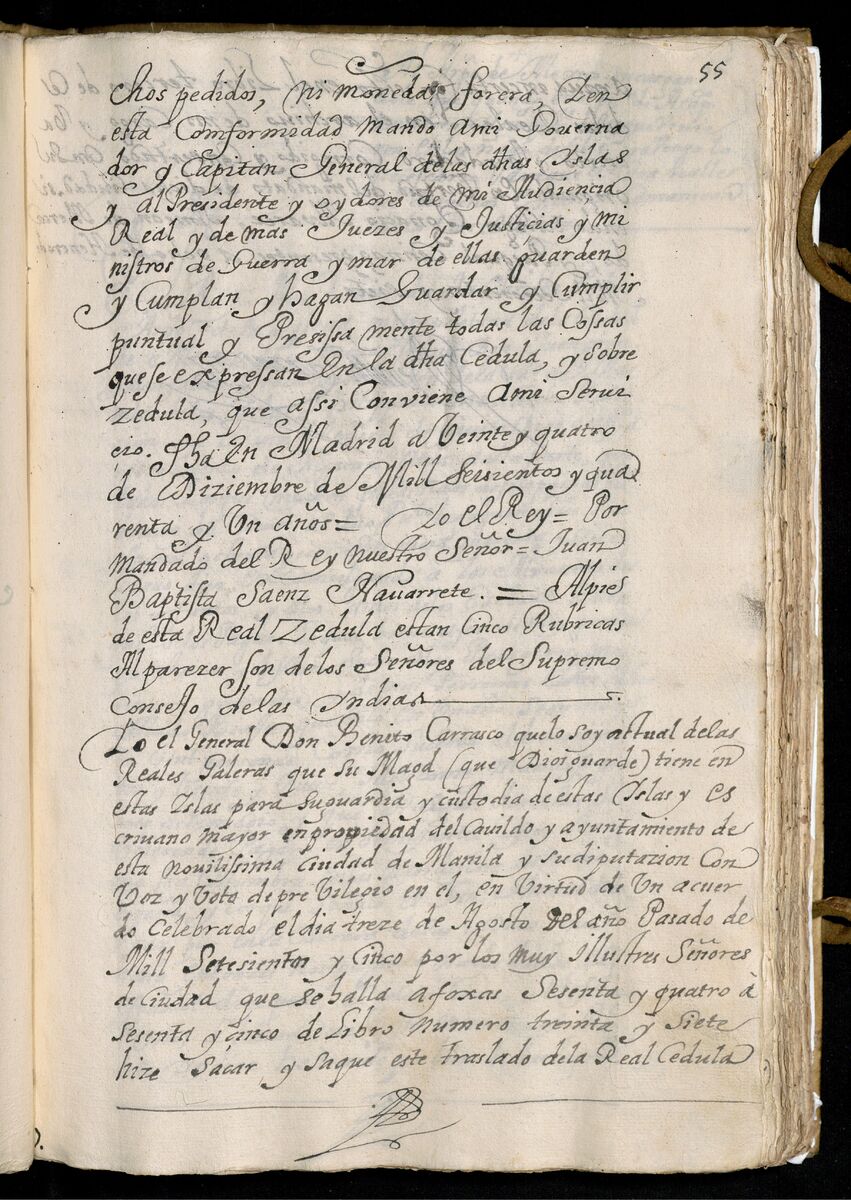 55
chos pedidos, ni moneda forera, Y en
esta Comformidad mando ami Governa
dor y Capitan General delas dhas Islas
y al Presidente y oydores de mi Audiencia
Real y de mas Juezes y Justicias y mi
nistros de Guerra y mar de ellas guarden
y Cumplan y hagan Guardar y Cumplir
puntual y Presissa mente todas las Cossas
que se expressan En la dha Cedula, y sobre
Zedula, que assi Conviene Ami Servi
cio. fha En Madrid a Veinte y quatro
de Diziembre de Mill seisientos y qua
renta y Un años = Yo el Rey = Por
Mandado del Rey nuestro Señor = Juan
Baptista Saenz Navarrete. = Al pie
de esta Real Zedula estan Cinco Rubricas
Al parezer son de los Señores del Supremo
Consejo de las Indias
Yo el General Don Benito Carrasco quelo soy actual delas
Reales Galeras que su Magd (que Dios guarde) tiene en
estas Islas para su guardia y custodia de estas Islas y es
crivano mayor en propiedad del Cavildo y ayuntamiento de
esta novilissima Ciudad de Manila y su diputazion Con
Voz y Voto de pre Vilegio en el, en Virtud de Un acuer
do Celebrado el dia treze de Agosto del año Pasado de
Mill Setesientos y Cinco por los muy Illustres Señores
de Ciudad que se halla a foxas Sesenta y quatro à
sesenta y cinco de Libro numero treinta y siete
hize Sacar y saque este traslado dela Real Cedula